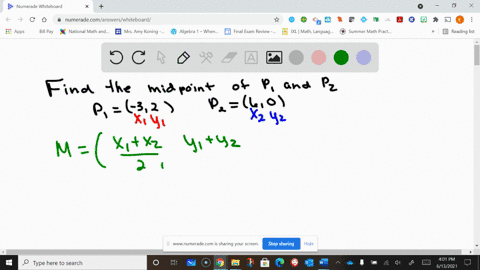 Numerade Whiteboard
numerade.com/answers/whiteboard/
Apps
Bill Pay
National Math and...
Mrs. Amy Koning -...
Algebra 1 - Whenev...
Final Exam Review -...
IXL | Math, Language...
Summer Math Pract...
Reading list
Find the midpoint of P₁ and P₂
P₁ = (-3, 2) P₂ = (6, 0)
x₁ y₁ x₂ y₂
M = ( x₁ + x₂ y₁ + y₂
2 ,
www.numerade.com is sharing your screen. Stop sharing Hide
Type here to search
4:01 PM
6/13/2021